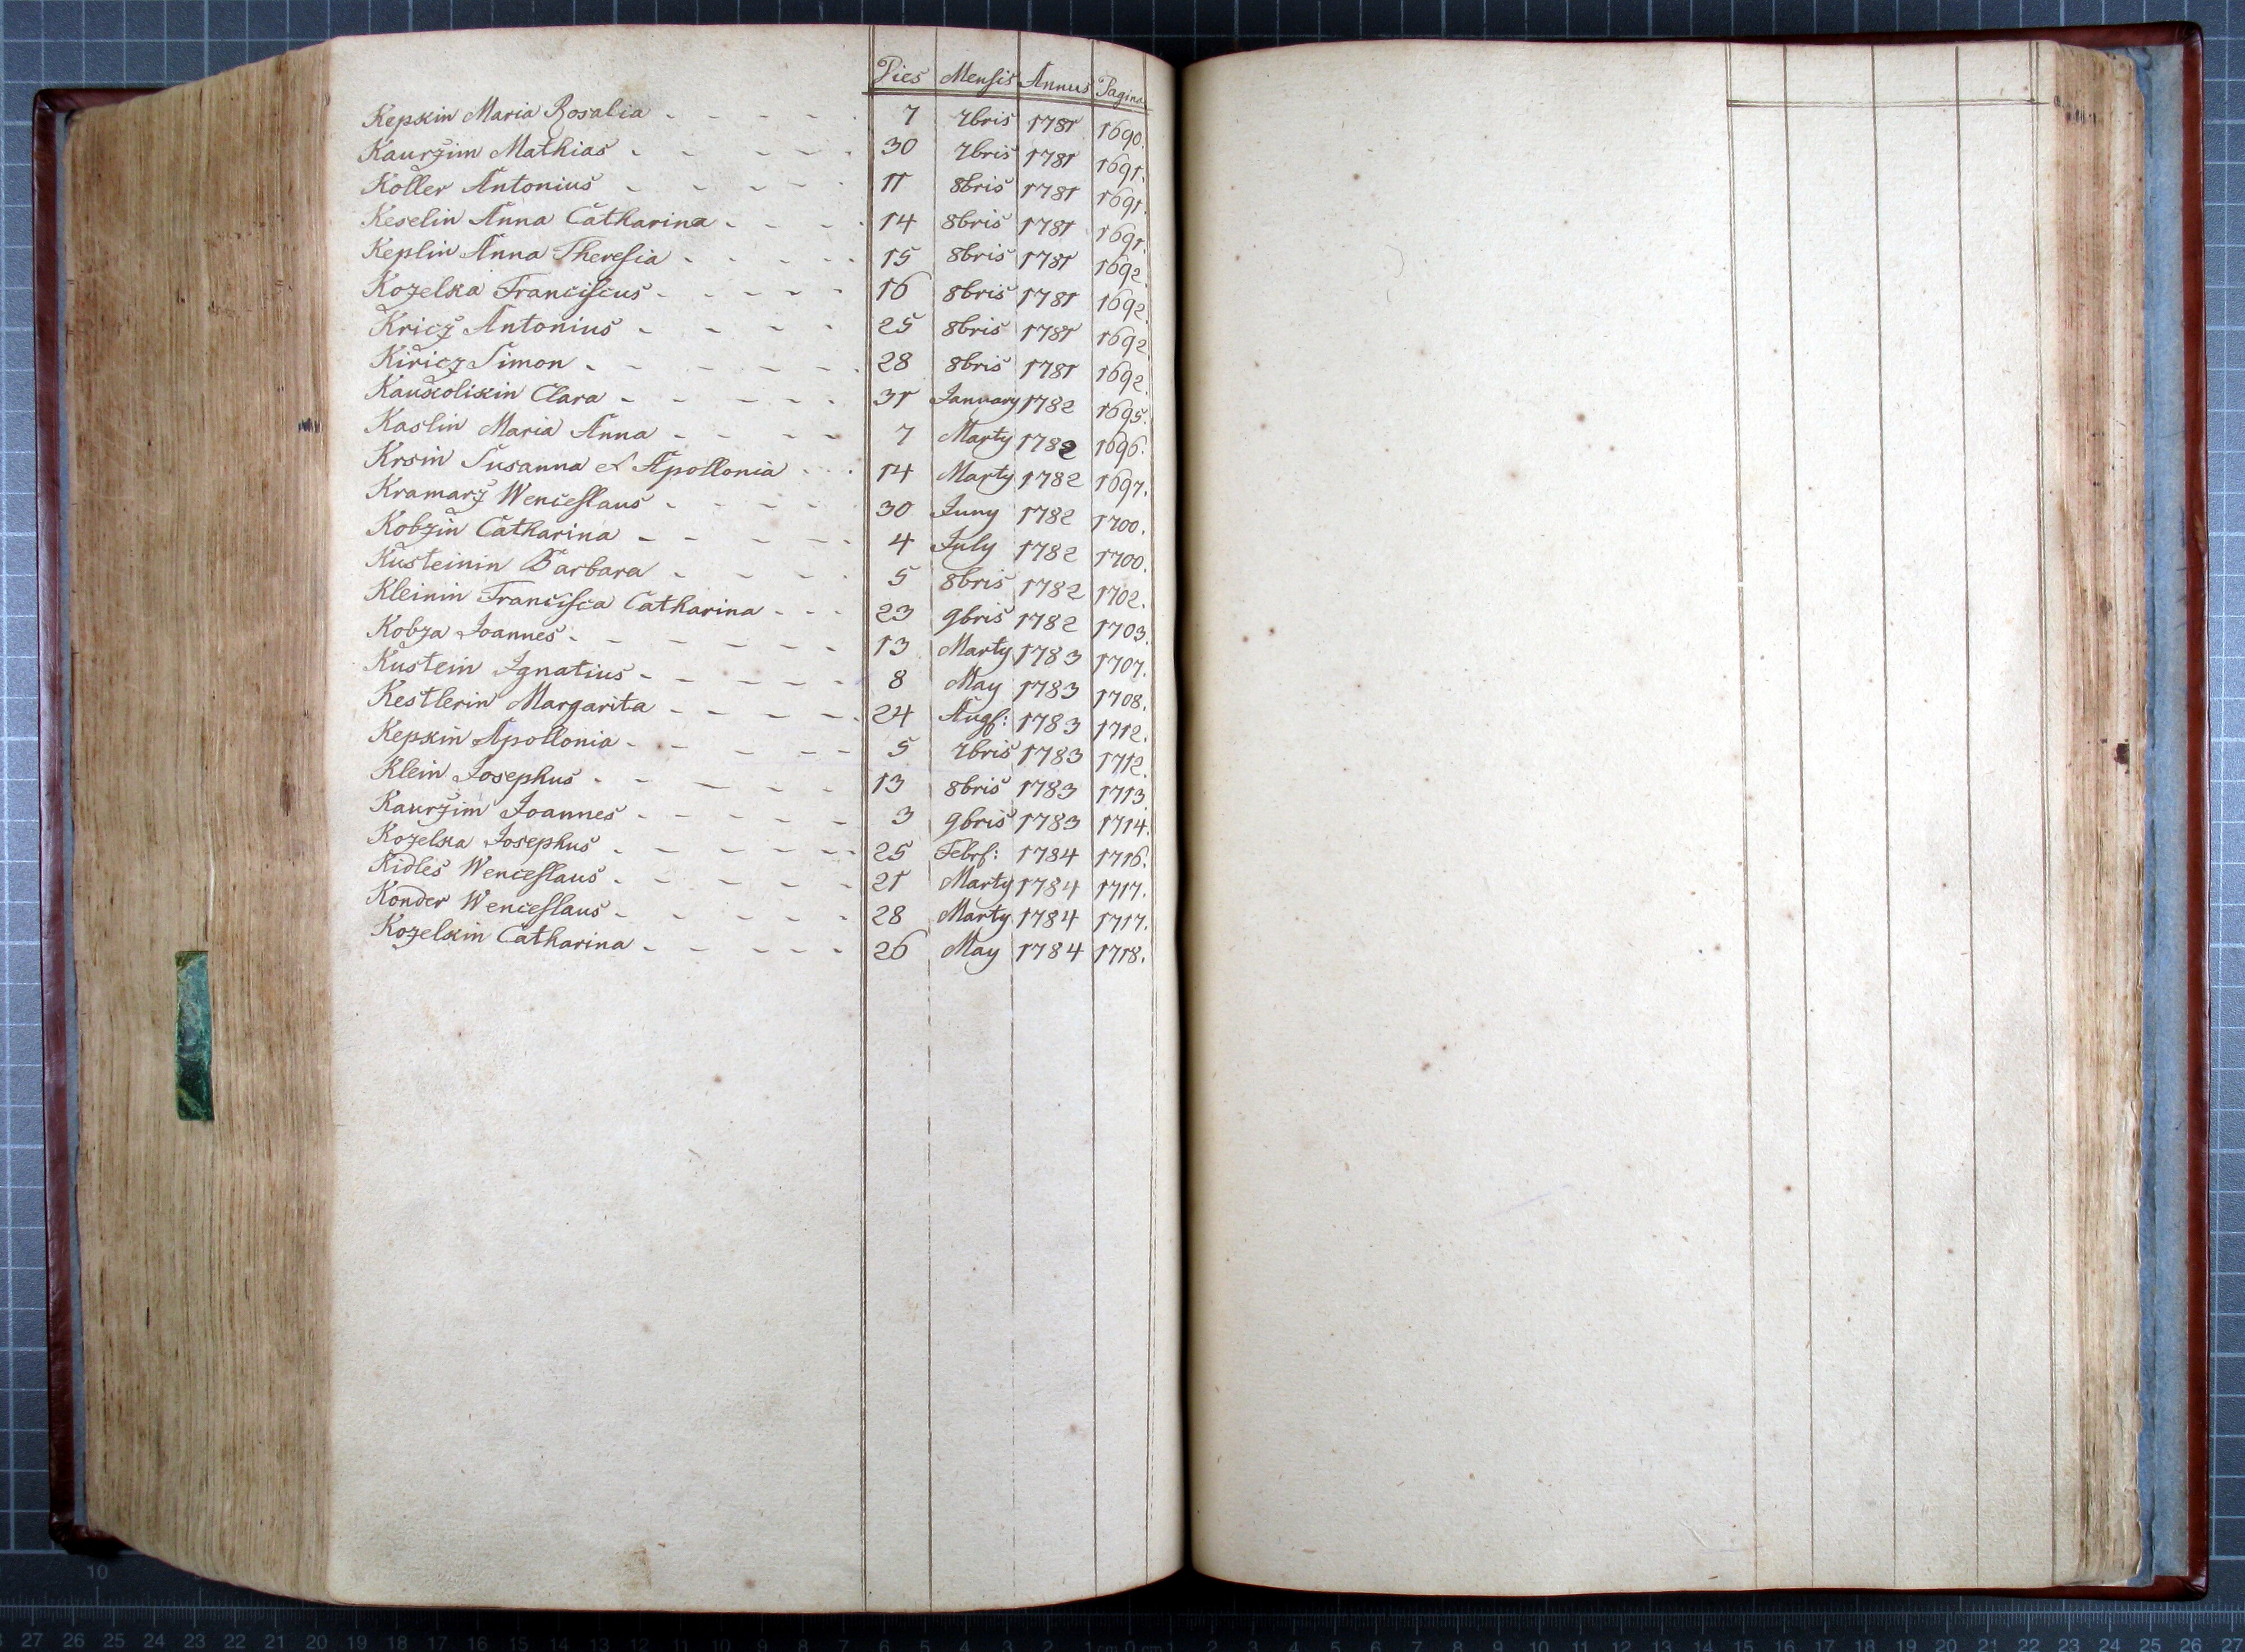 Dies Mensis Annus Pagina
Kepskin Maria Rosalia 7 7bris 1781 1690.
Kaurzim Mathias 30 7bris 1781 1691.
Koller Antonius 11 8bris 1781 1691.
Keselin Anna Catharina 14 8bris 1781 1691.
Keplin Anna Theresia 15 8bris 1781 1692.
Kozelka Franciscus 16 8bris 1781 1692.
Kricz Antonius 25 8bris 1781 1692.
Kiricz Simon 28 8bris 1781 1692.
Kaukolikin Clara 31 January 1782 1695.
Kaslin Maria Anna 7 Marty 1782 1696.
Krsin Susanna et Apollonia 14 Marty 1782 1697.
Kramarz Wenceslaus 30 Juny 1782 1700.
Kobzin Catharina 4 July 1782 1700.
Kusteinin Barbara 5 8bris 1782 1702.
Kleinin Francisca Catharina 23 9bris 1782 1703.
Kobza Joannes 13 Marty 1783 1707.
Kustein Ignatius 8 May 1783 1708.
Kestlerin Margarita 24 Augs: 1783 1712.
Kepskin Apollonia 5 7bris 1783 1712.
Klein Josephus 13 8bris 1783 1713.
Kaurzim Joannes 3 9bris 1783 1714.
Kozelka Josephus 25 Febr: 1784 1716.
Kidles Wenceslaus 21 Marty 1784 1717.
Konder Wenceslaus 28 Marty 1784 1717.
Kozelkin Catharina 26 May 1784 1718.